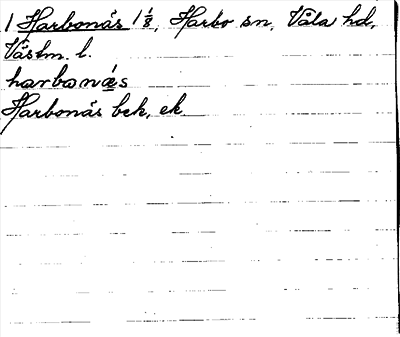 1 Harbonäs 1 1/8, Harbo sn, Våla hd,
Västm. l.
harbonä̱s
Harbonäs bek, ek